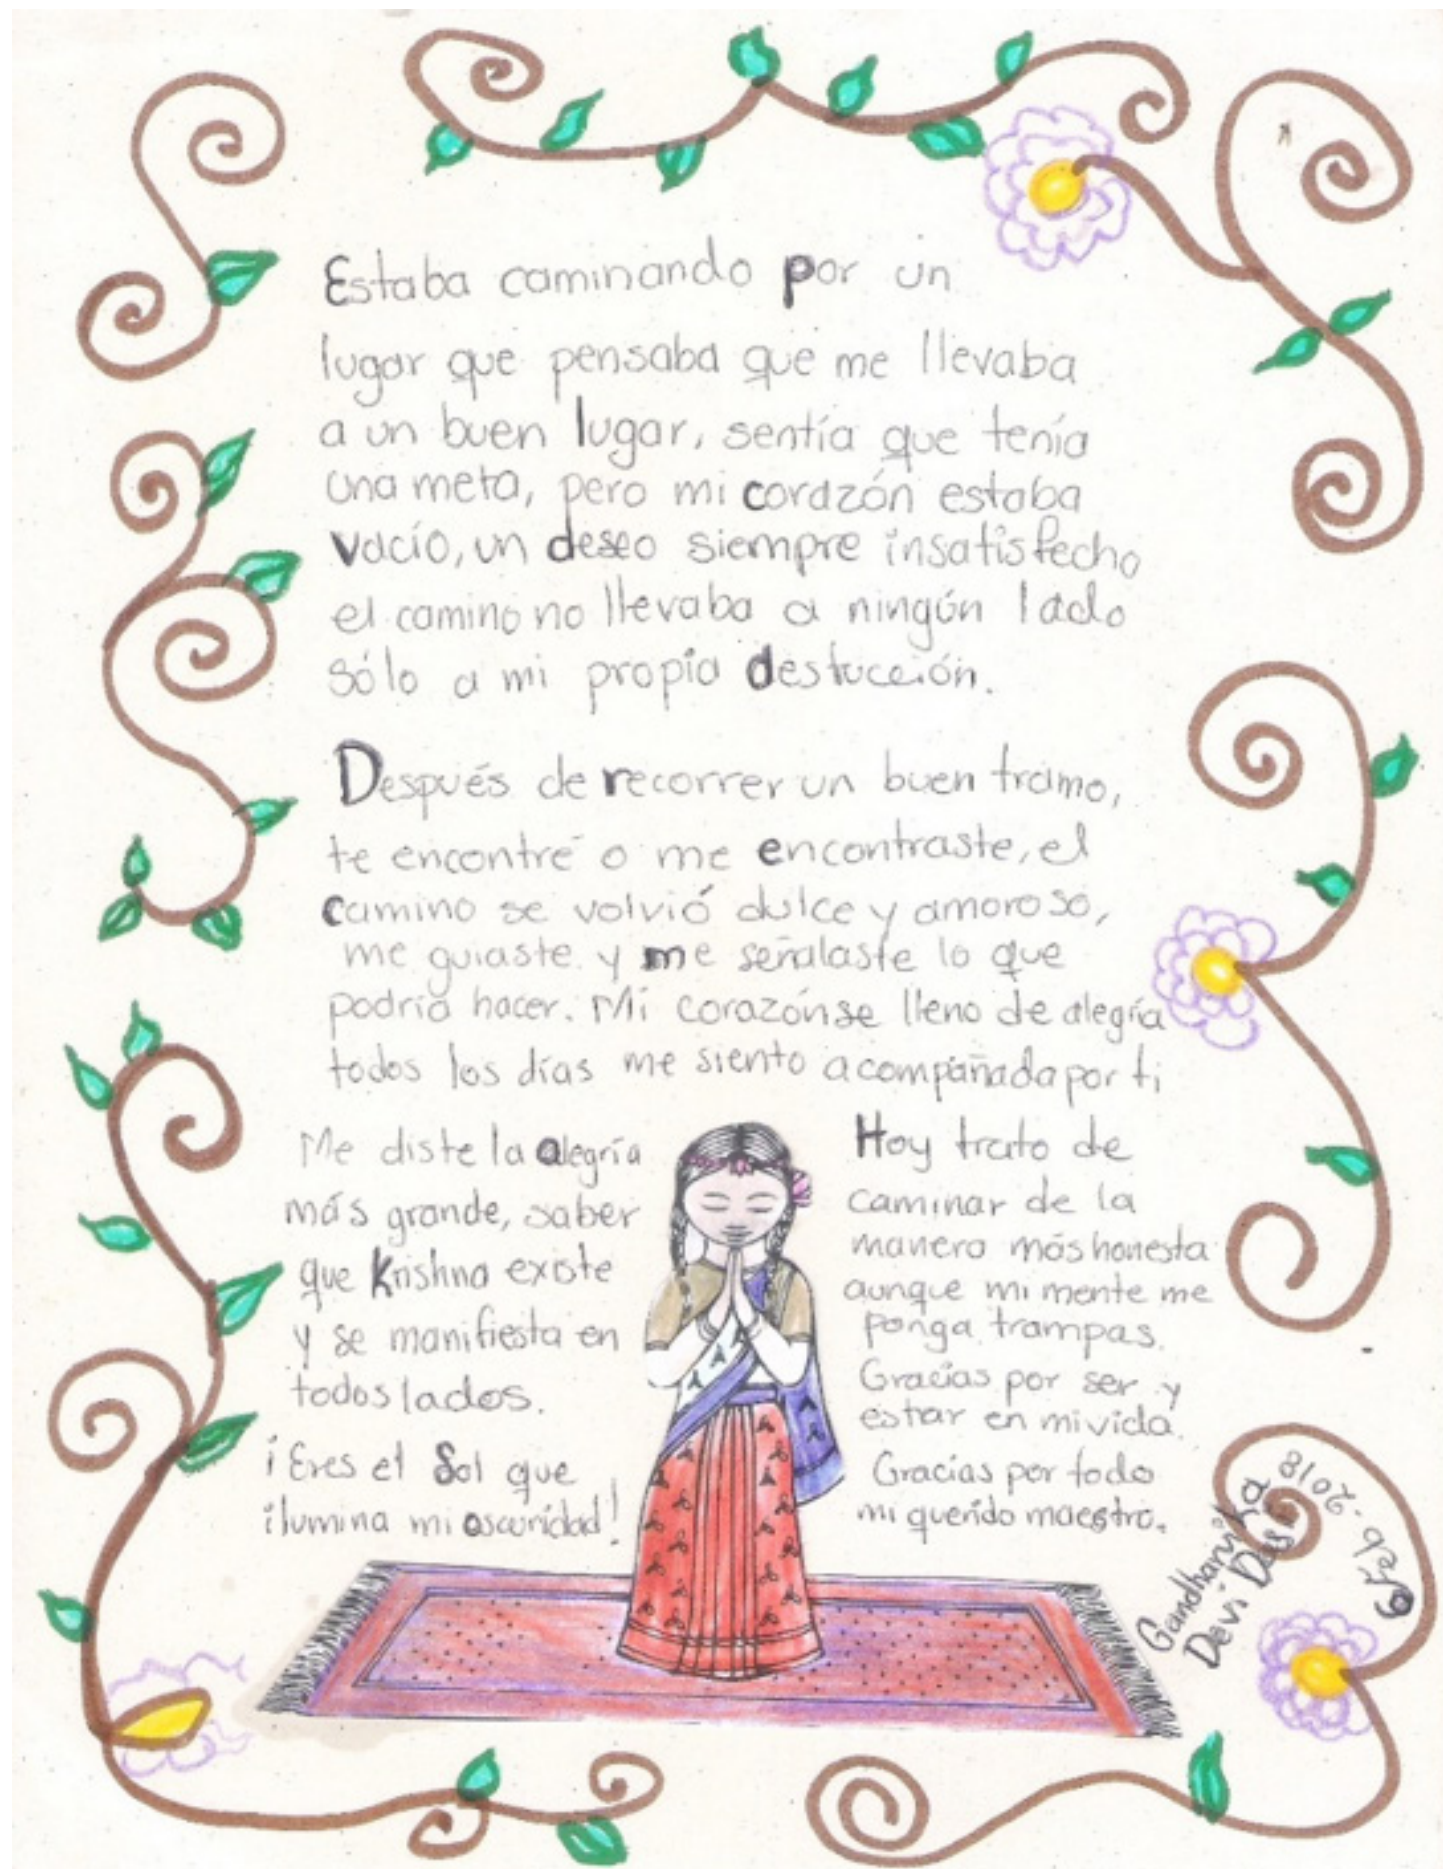 Estaba caminando por un
lugar que pensaba que me llevaba
a un buen lugar, sentía que tenía
una meta, pero mi corazón estaba
vacío, un deseo siempre insatisfecho
el camino no llevaba a ningún lado
sólo a mi propia destucción.
Después de recorrer un buen tramo,
te encontré o me encontraste, el
camino se volvió dulce y amoroso,
me guiaste y me señalaste lo que
podría hacer. Mi corazón se lleno de alegría
todos los días me siento acompañada por ti
Me diste la alegría
más grande, saber
que Krishna existe
y se manifiesta en
todos lados.
¡Eres el Sol que
ilumina mi oscuridad!
Hoy trato de
caminar de la
manera más honesta
aunque mi mente me
ponga trampas.
Gracias por ser y
estar en mi vida.
Gracias por todo
mi querido maestro.
Gandharvika
Devi Dasi
6 Feb. 2018